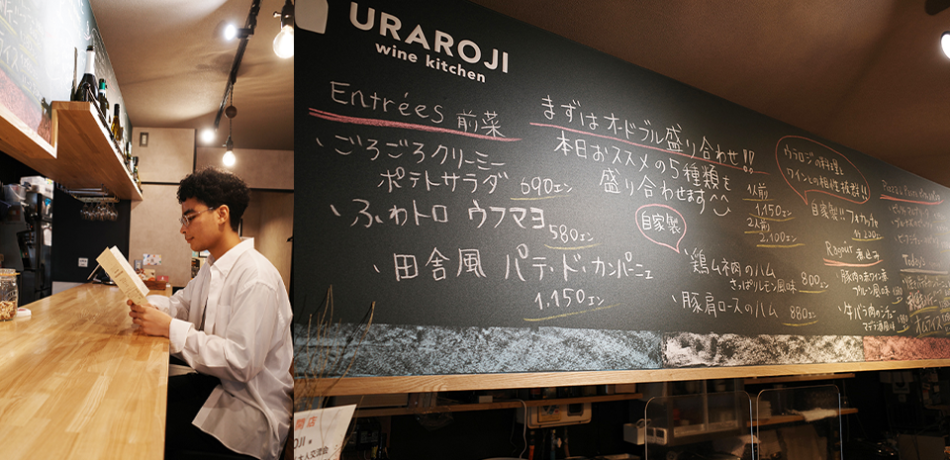 URAROJI
wine kitchen
Entrées 前菜
、ごろごろクリーミー
ポテトサラダ 690エン
、ふわトロ ウフマヨ
580エン
、田舎風 パテ・ド・カンパーニェ
1,150エン
まずはオードブル盛り合わせ!!
本日おススメの5種類を
盛り合わせます
1人前
1,150エン
2人前
2,100エン
自家製
、鶏ムネ肉のハム
さっぱりレモン風味 800エン
、豚肩ロースのハム 880エン
ワインとの相性抜群!!
自家製!! フォカッチャ
Ragout 煮込み
豚肉の赤ワイン煮
プルーン風味
、牛バラ肉の
マデラ酒風味
オムライス